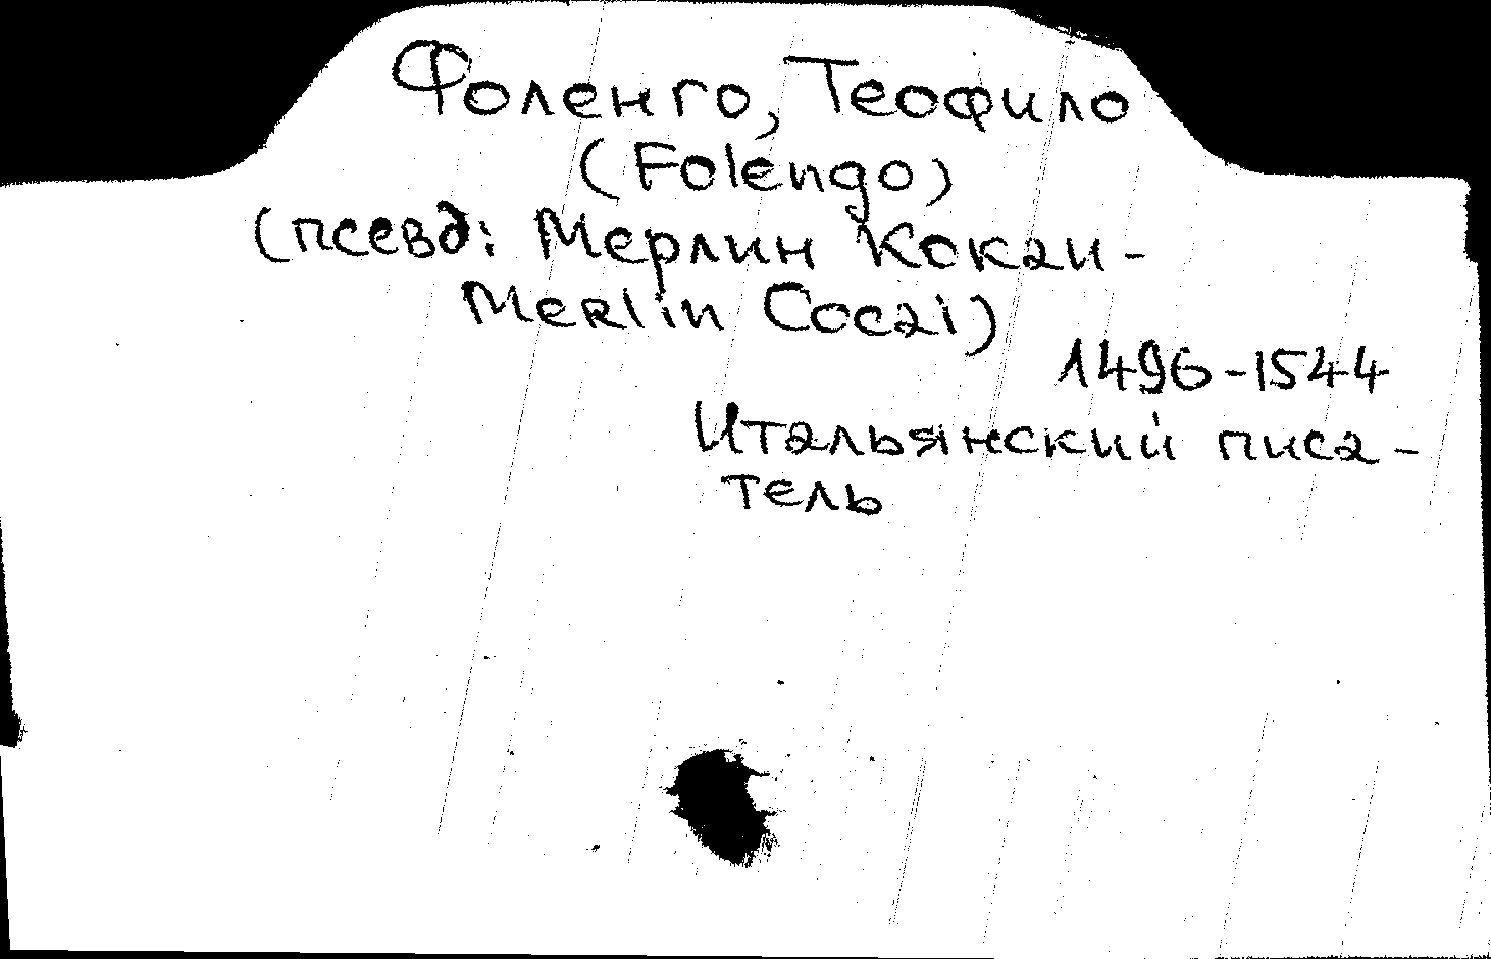 Фоленго, Теофило
(Folengo)
(псевд: Мерлин Кокаи-
Merlin Cocai)
1496-1544
Итальянский писа-
тель